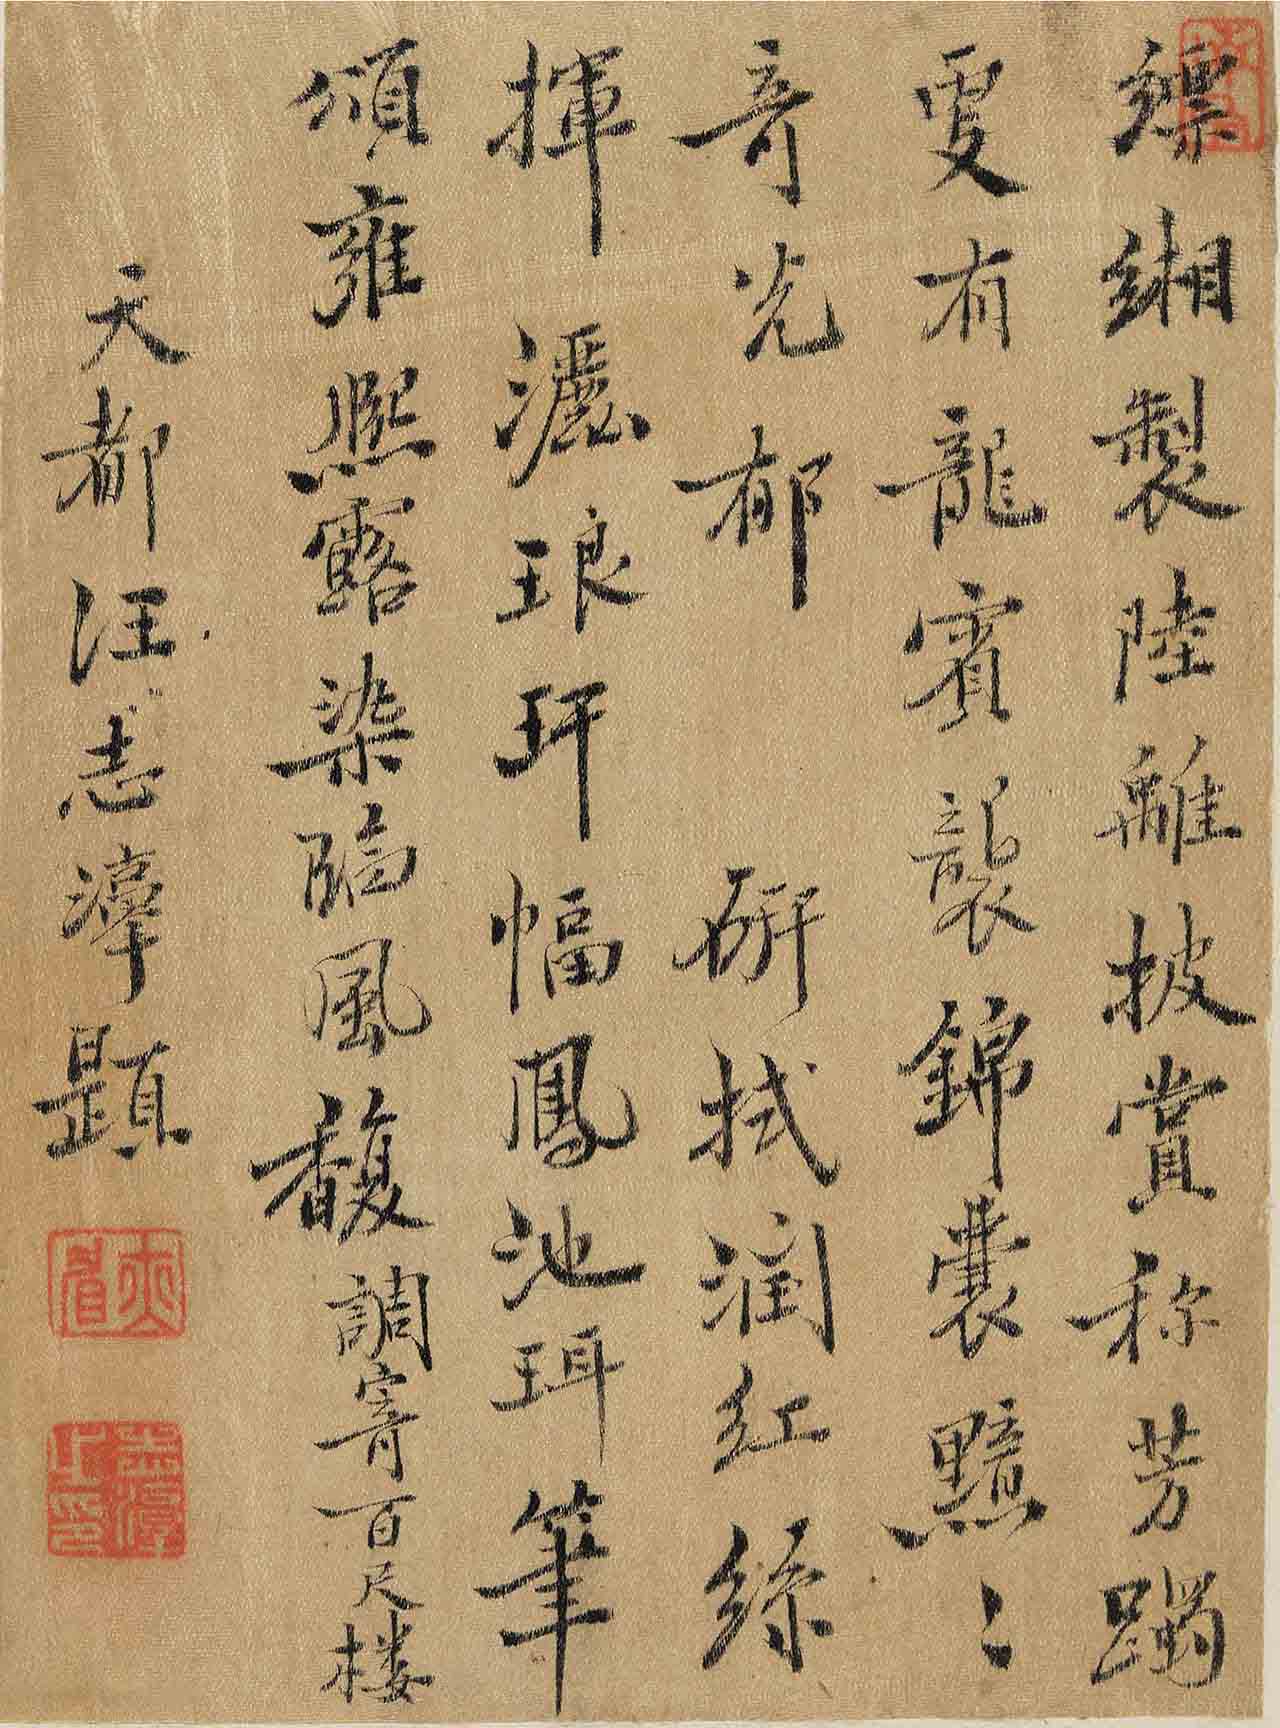 縹緗製陸離披賞称芳躅
更有龍賓襲錦囊黯〻
竒光郁 研拭潤紅絲
揮灑琅玕幅鳳池珥筆
頌雍熙露染臨風馥調寄百尺樓
天都汪志題